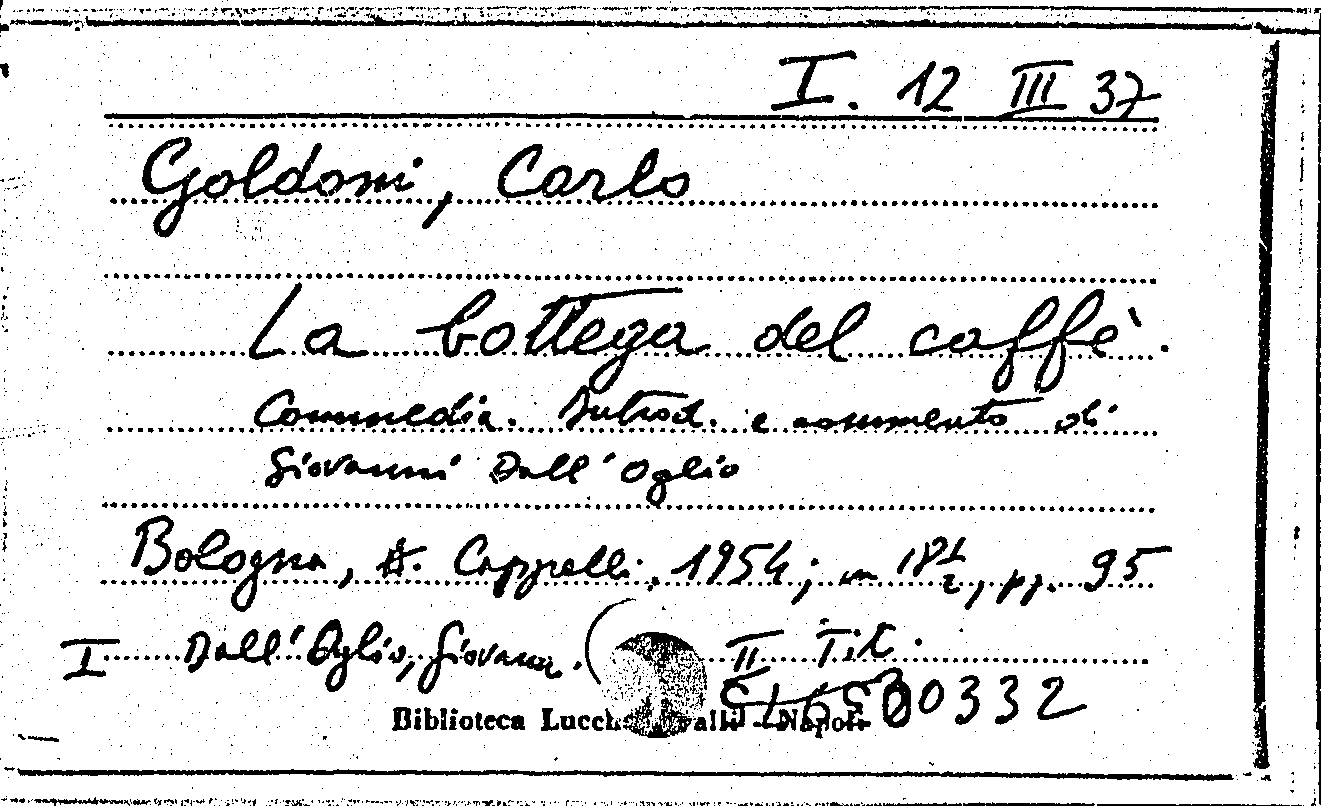 I. 12 III 37
Goldoni, Carlo
La bottega del caffè.
Commedia. Introd. e commento di
Giovanni Dall'Oglio
Bologna, A. Cappelli, 1954; in 18½, pp. 95
I Dall'Oglio, Giovanni. II Tit.
0332
Biblioteca Lucchesi Palli - Napoli